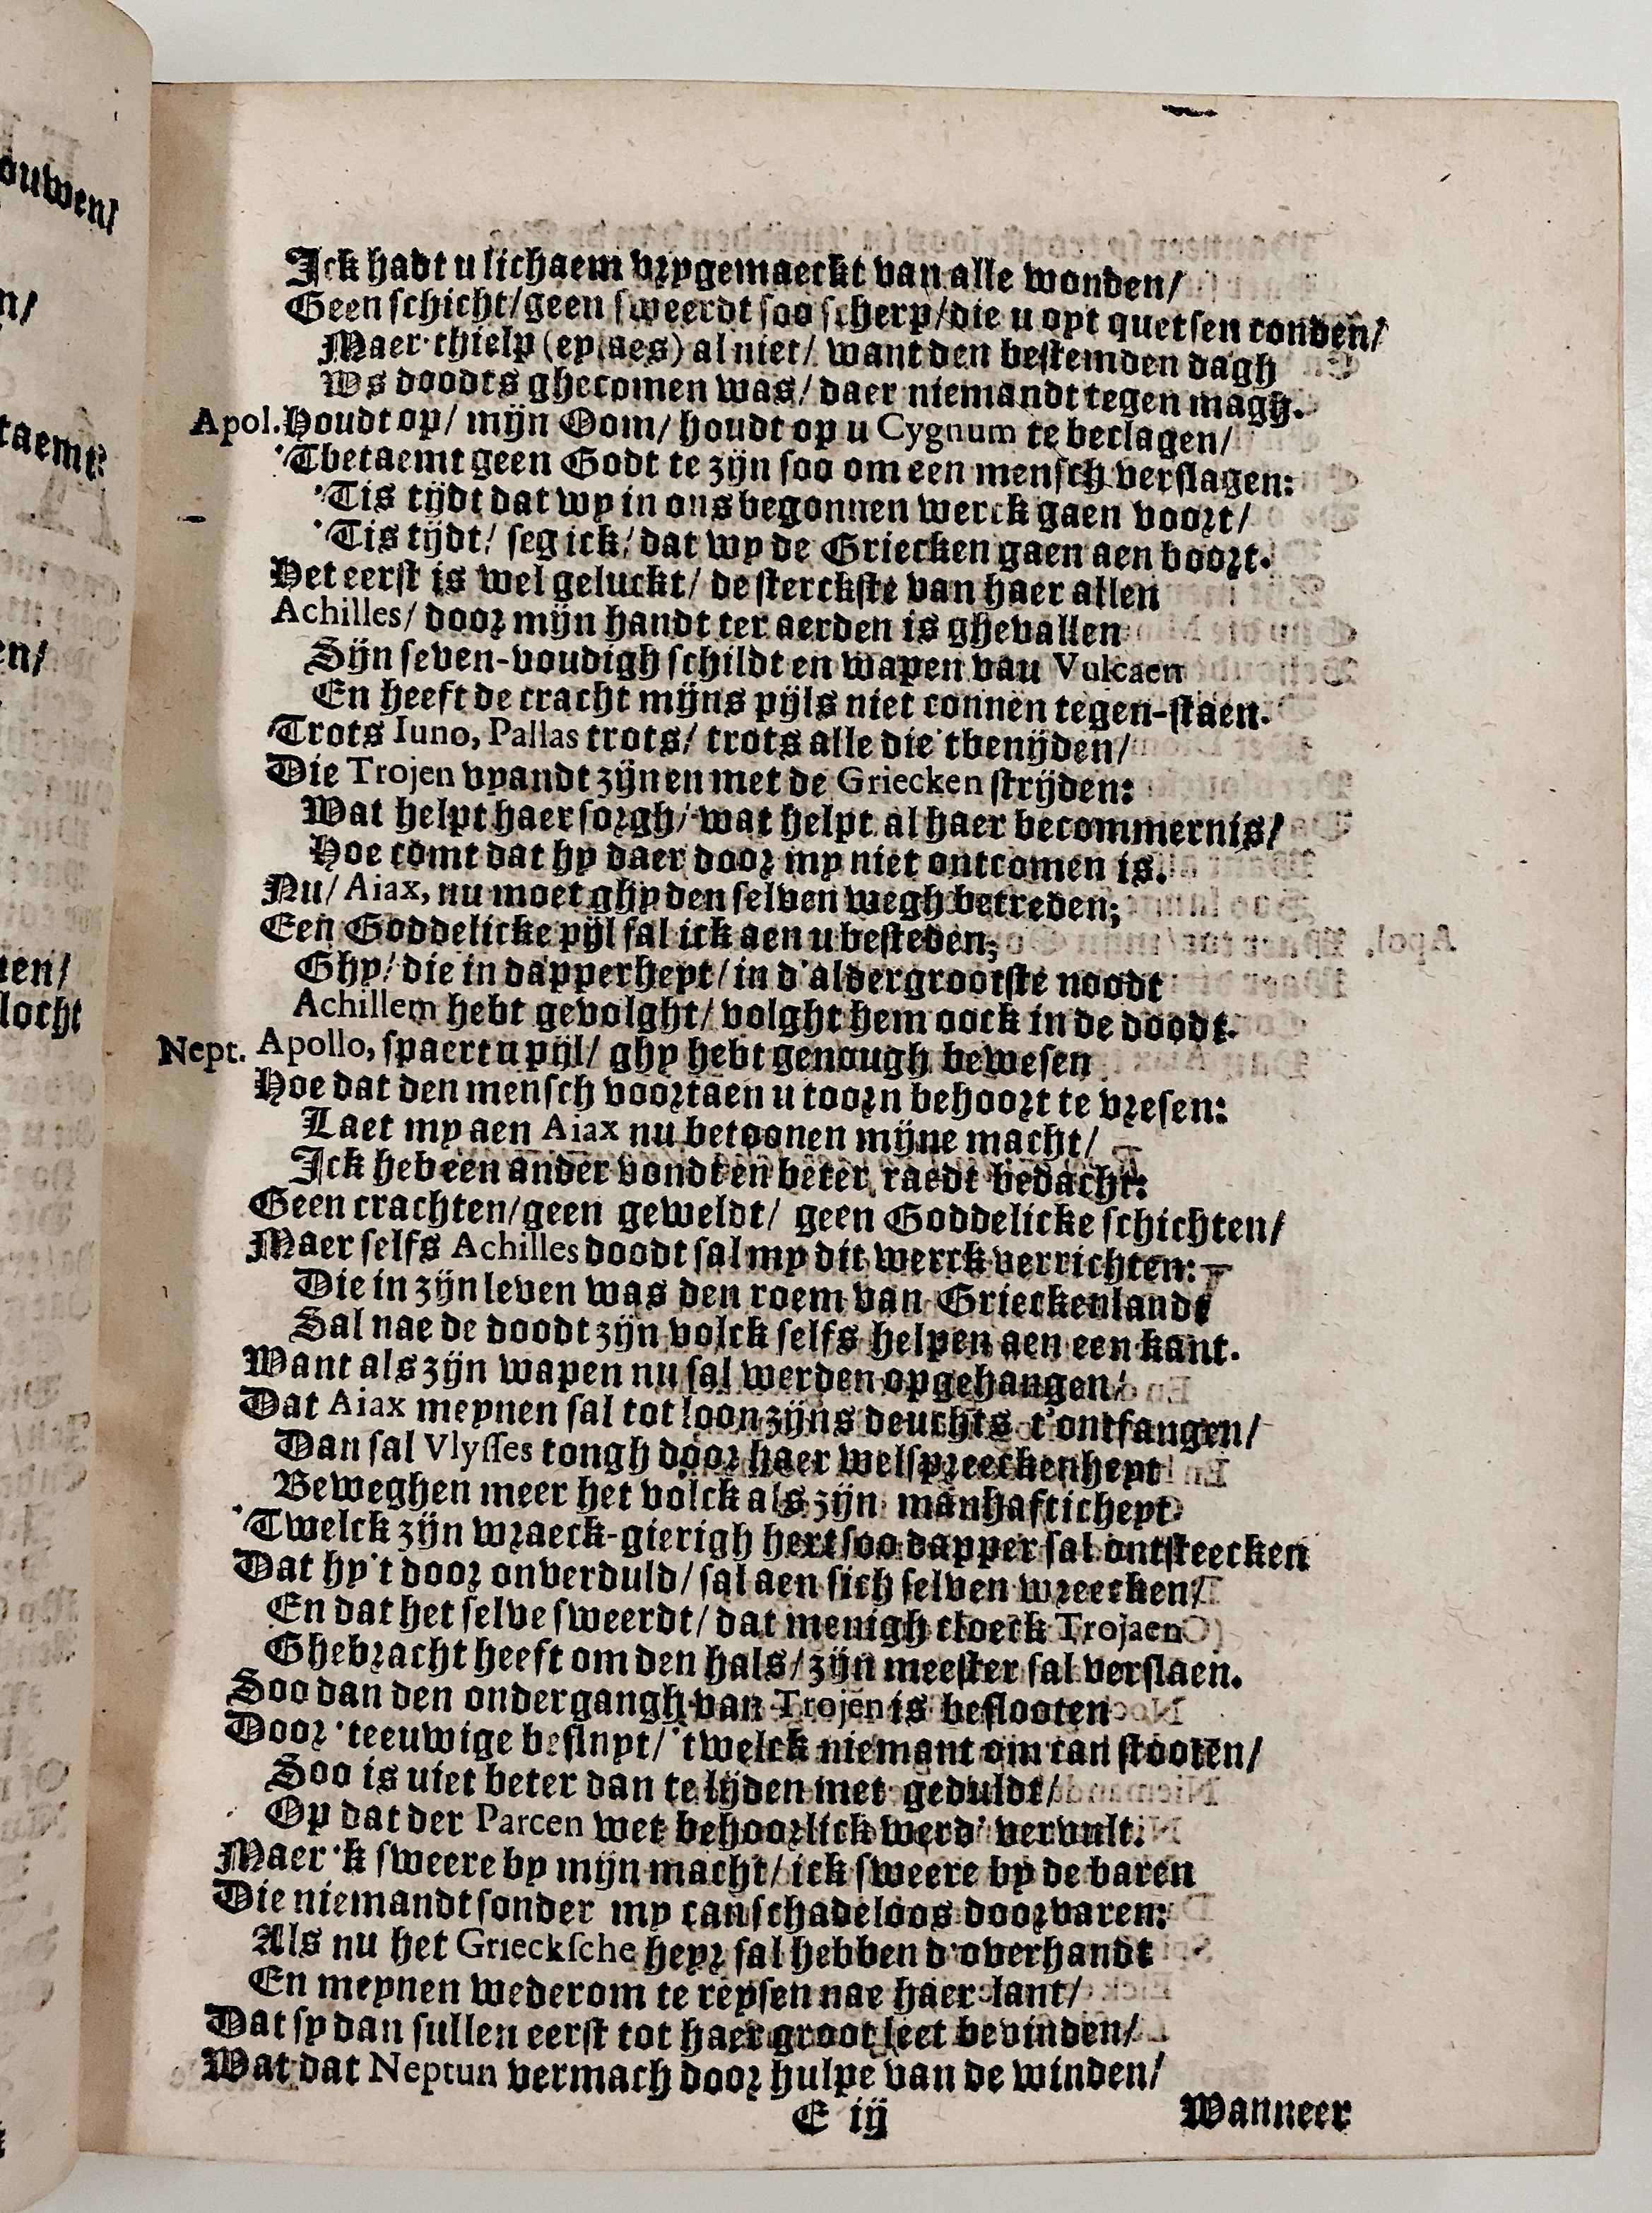 Ick hadt u lichaem vrygemaeckt van alle wonden/
Geen schicht/geen sweerdt soo scherp/die u oyt quetsen conden/
Maer thielp (eylaes) al niet/ want den bestemden dagh
Ws doodts ghecomen was/ daer niemandt tegen magh.
Apol. Houdt op/ mijn Oom/ houdt op u Cygnum te beclagen/
'Tbetaemt geen Godt te zijn soo om een mensch verslagen:
'Tis tijdt dat wy in ons begonnen werck gaen voort/
'Tis tijdt/ seg ick/ dat wy de Griecken gaen aen boort.
Het eerst is wel geluckt/ de sterckste van haer allen
Achilles/ door mijn handt ter aerden is ghevallen
Sijn seven-voudigh schildt en wapen vau Vulcaen
En heeft de cracht mijns pijls niet connen tegen-staen.
Trots Iuno, Pallas trots/ trots alle die 'tbenijden/
Die Trojen vyandt zijn en met de Griecken strijden:
Wat helpt haer sorgh/ wat helpt al haer becommernis/
Hoe comt dat hy daer door my niet ontcomen is.
Nu/ Aiax, nu moet ghy den selven wegh betreden;
Een Goddelicke pijl sal ick aen u besteden;
Ghy/ die in dapperheyt/ in d'aldergrootste noodt
Achillem hebt gevolght/ volght hem oock in de doodt.
Nept. Apollo, spaert u pijl/ ghy hebt genough bewesen
Hoe dat den mensch voortaen u toorn behoort te vresen:
Laet my aen Aiax nu betoonen mijne macht/
Ick heb een ander vondt en beter raedt bedacht:
Geen crachten/geen geweldt/ geen Goddelicke schichten/
Maer selfs Achilles doodt sal my dit werck verrichten:
Die in zijn leven was den roem van Grieckenlandt
Sal nae de doodt zijn volck selfs helpen aen een kant.
Want als zijn wapen nu sal werden opgehangen/
Dat Aiax meynen sal tot loon zijns deuchts t'ontfangen/
Dan sal Vlysses tongh door haer welspreeckenheyt
Beweghen meer het volck als zijn manhafticheyt
'Twelck zijn wraeck-gierigh hert soo dapper sal ontsteecken
Dat hy't door onverduld/ sal aen sich selven wreecken/
En dat het selve sweerdt/ dat menigh cloeck Trojaen
Ghebracht heeft om den hals/ zijn meester sal verslaen.
Soo dan den ondergangh van Trojen is beslooten
Door 'teeuwige beslnyt/ 'twelck niemant om can stooten/
Soo is uiet beter dan te lijden met geduldt/
Op dat der Parcen wet behoorlick werd' vervult.
Maer 'k sweere by mijn macht/ ick sweere by de baren
Die niemandt sonder my can schadeloos doorvaren:
Als nu het Griecksche heyr sal hebben d'overhandt
En meynen wederom te reysen nae haer lant/
Dat sy dan sullen eerst tot haer groot leet bevinden/
Wat dat Neptun vermach door hulpe van de winden/
E iij
Wanneer